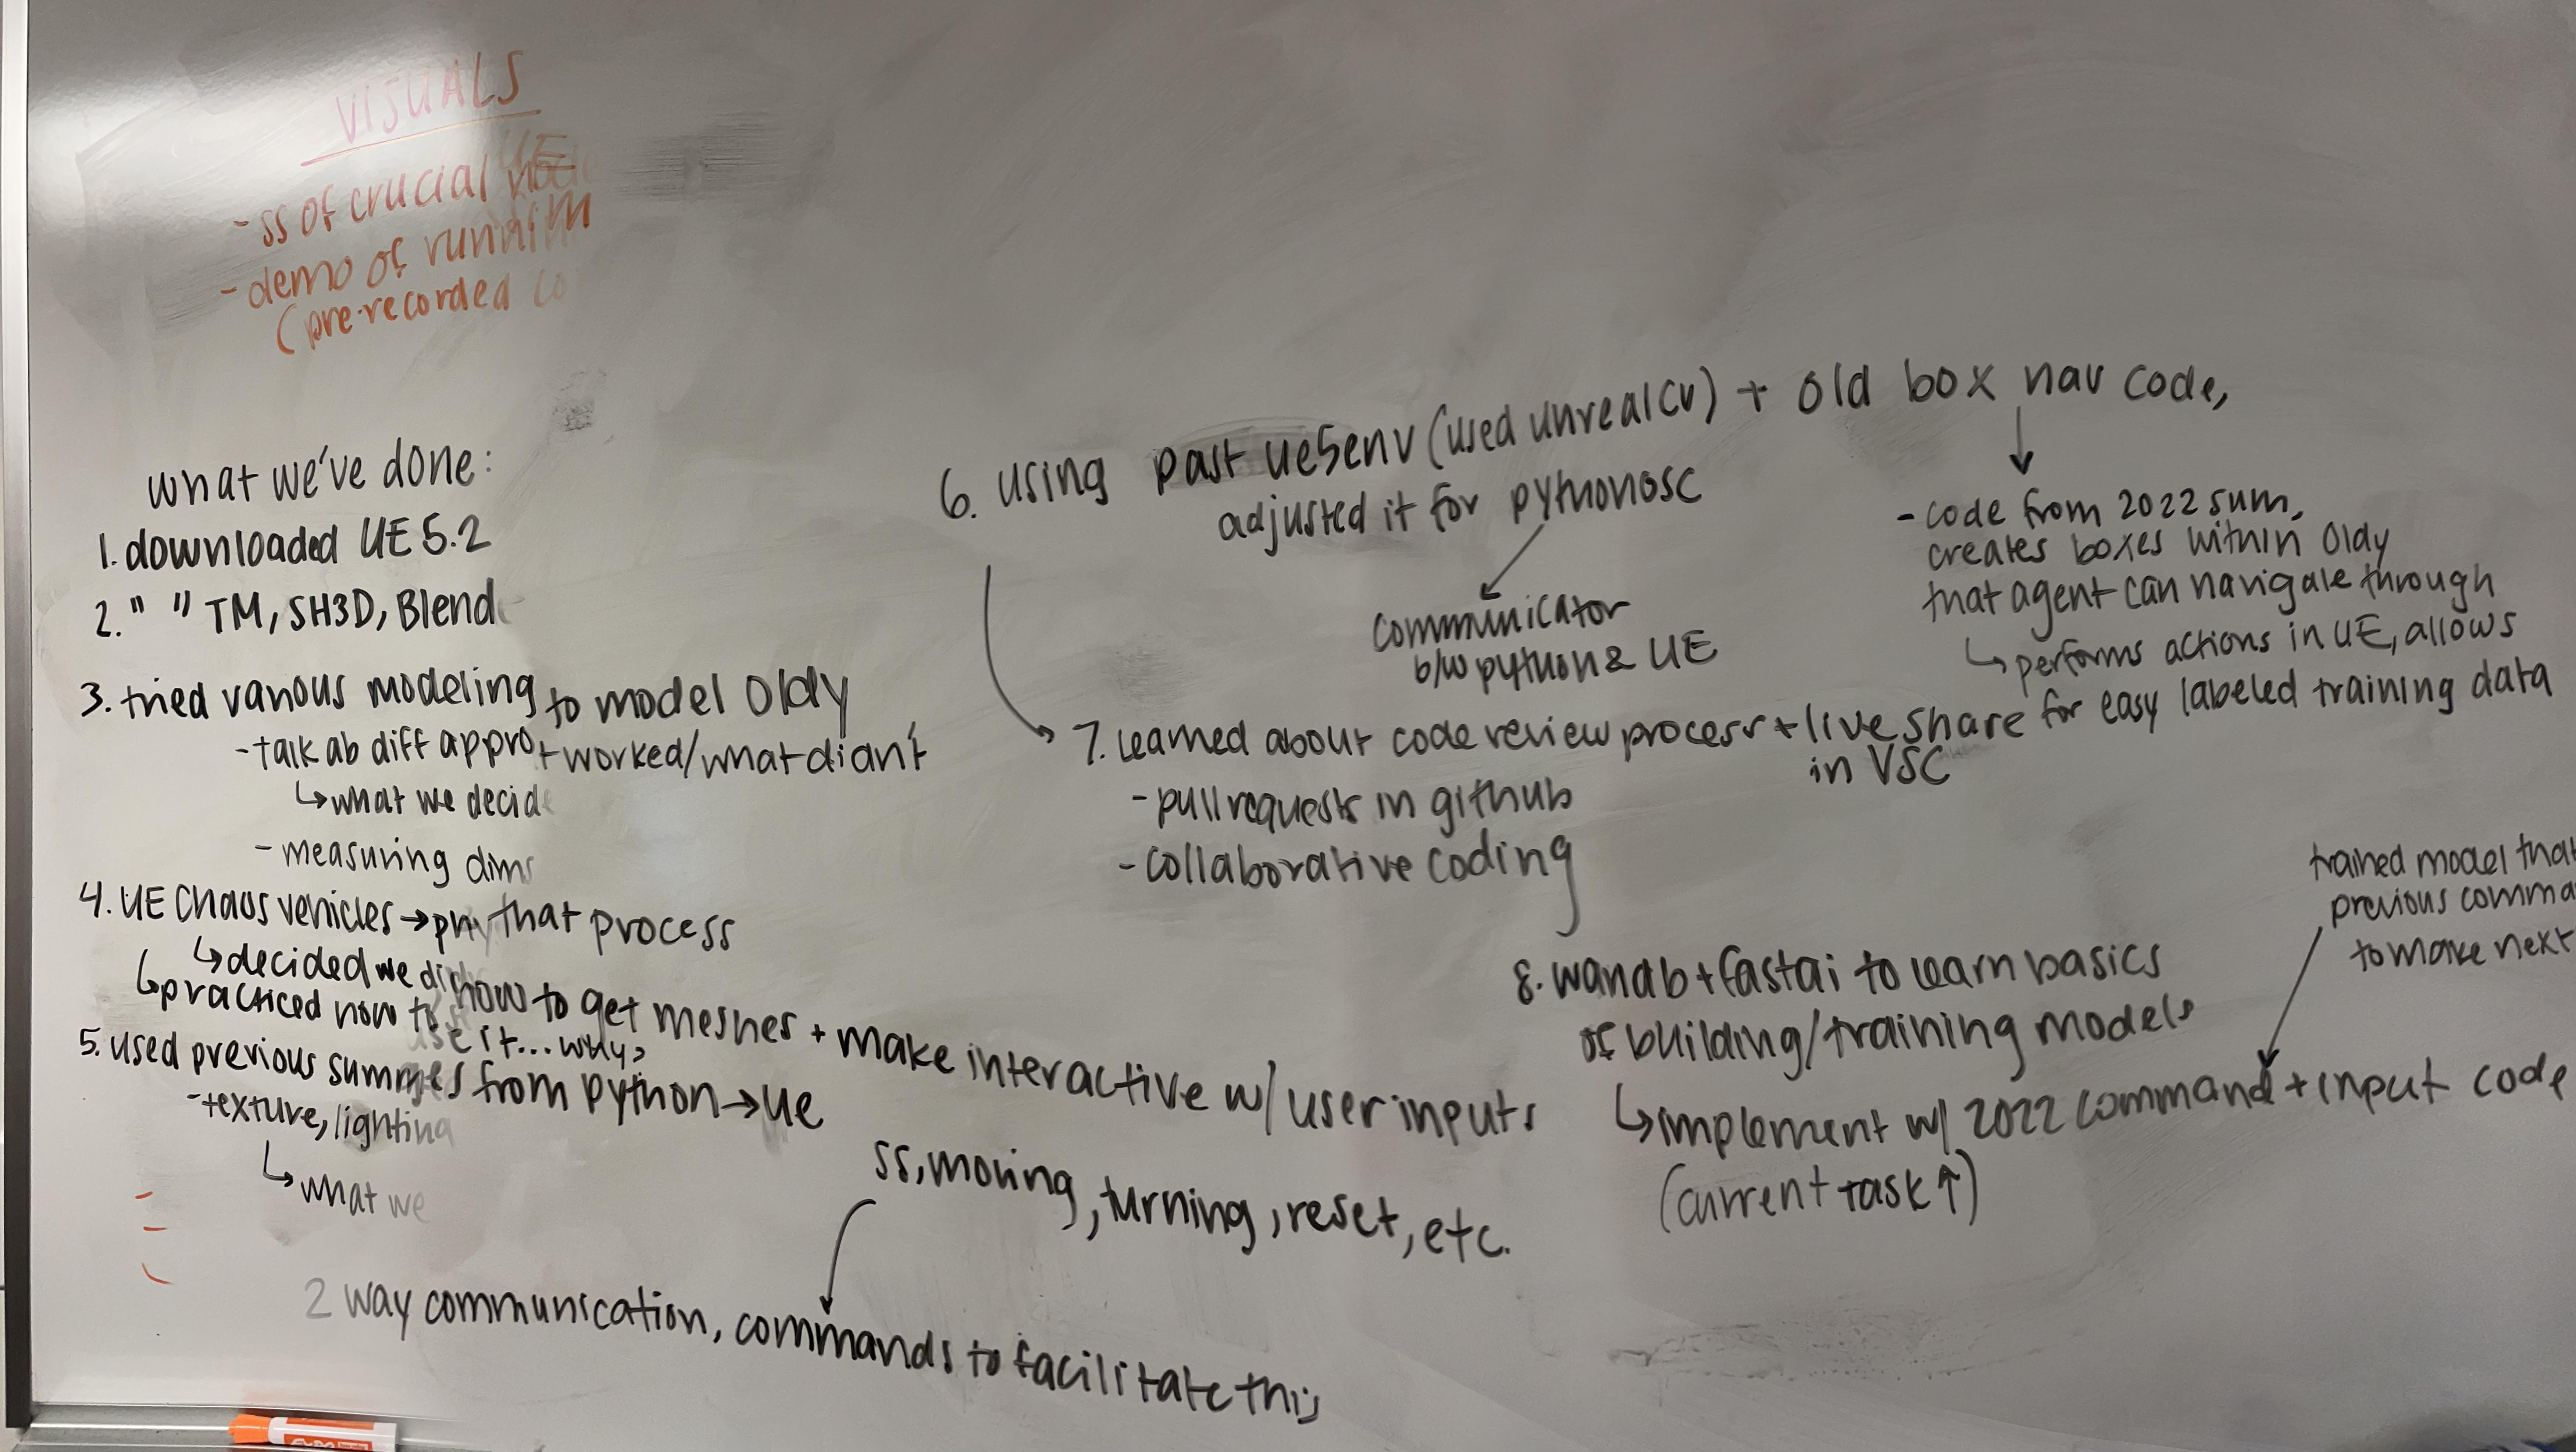 VISUALS
- ss of crucial UE
- demo of runnin
(pre-recorded co
what we've done:
1. downloaded UE 5.2
2. " " TM, SH3D, Blend
3. tried various modeling to model Oldy
- talk ab diff appro t worked/what didn't
↳ what we decid
- measuring dims
4. UE Chaos vehicles → phy that process
↳ decided we di
↳ practiced how to how to get meshes + make interactive w/ user inputs
use it... why?
5. used previous summ from python → ue
- texture, lighting
↳ what we
ss, moving, turning, reset, etc.
2 way communication, commands to facilitate this
6. using past ue5env (used unrealcv) + old box nav code,
adjusted it for pythonosc
communicator
b/w python & UE
- code from 2022 sum,
creates boxes within Oldy
that agent can navigate through
↳ performs actions in UE, allows
for easy labeled training data
7. learned about code review process + live share
in VSC
- pull requests in github
- collaborative coding
8. wandb + fastai to learn basics
of building/training models
↳ implement w/ 2022 command + input code
(current task ↑)
trained model that
previous comma
to make next